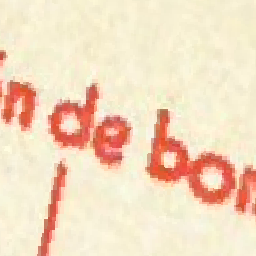 in de bon